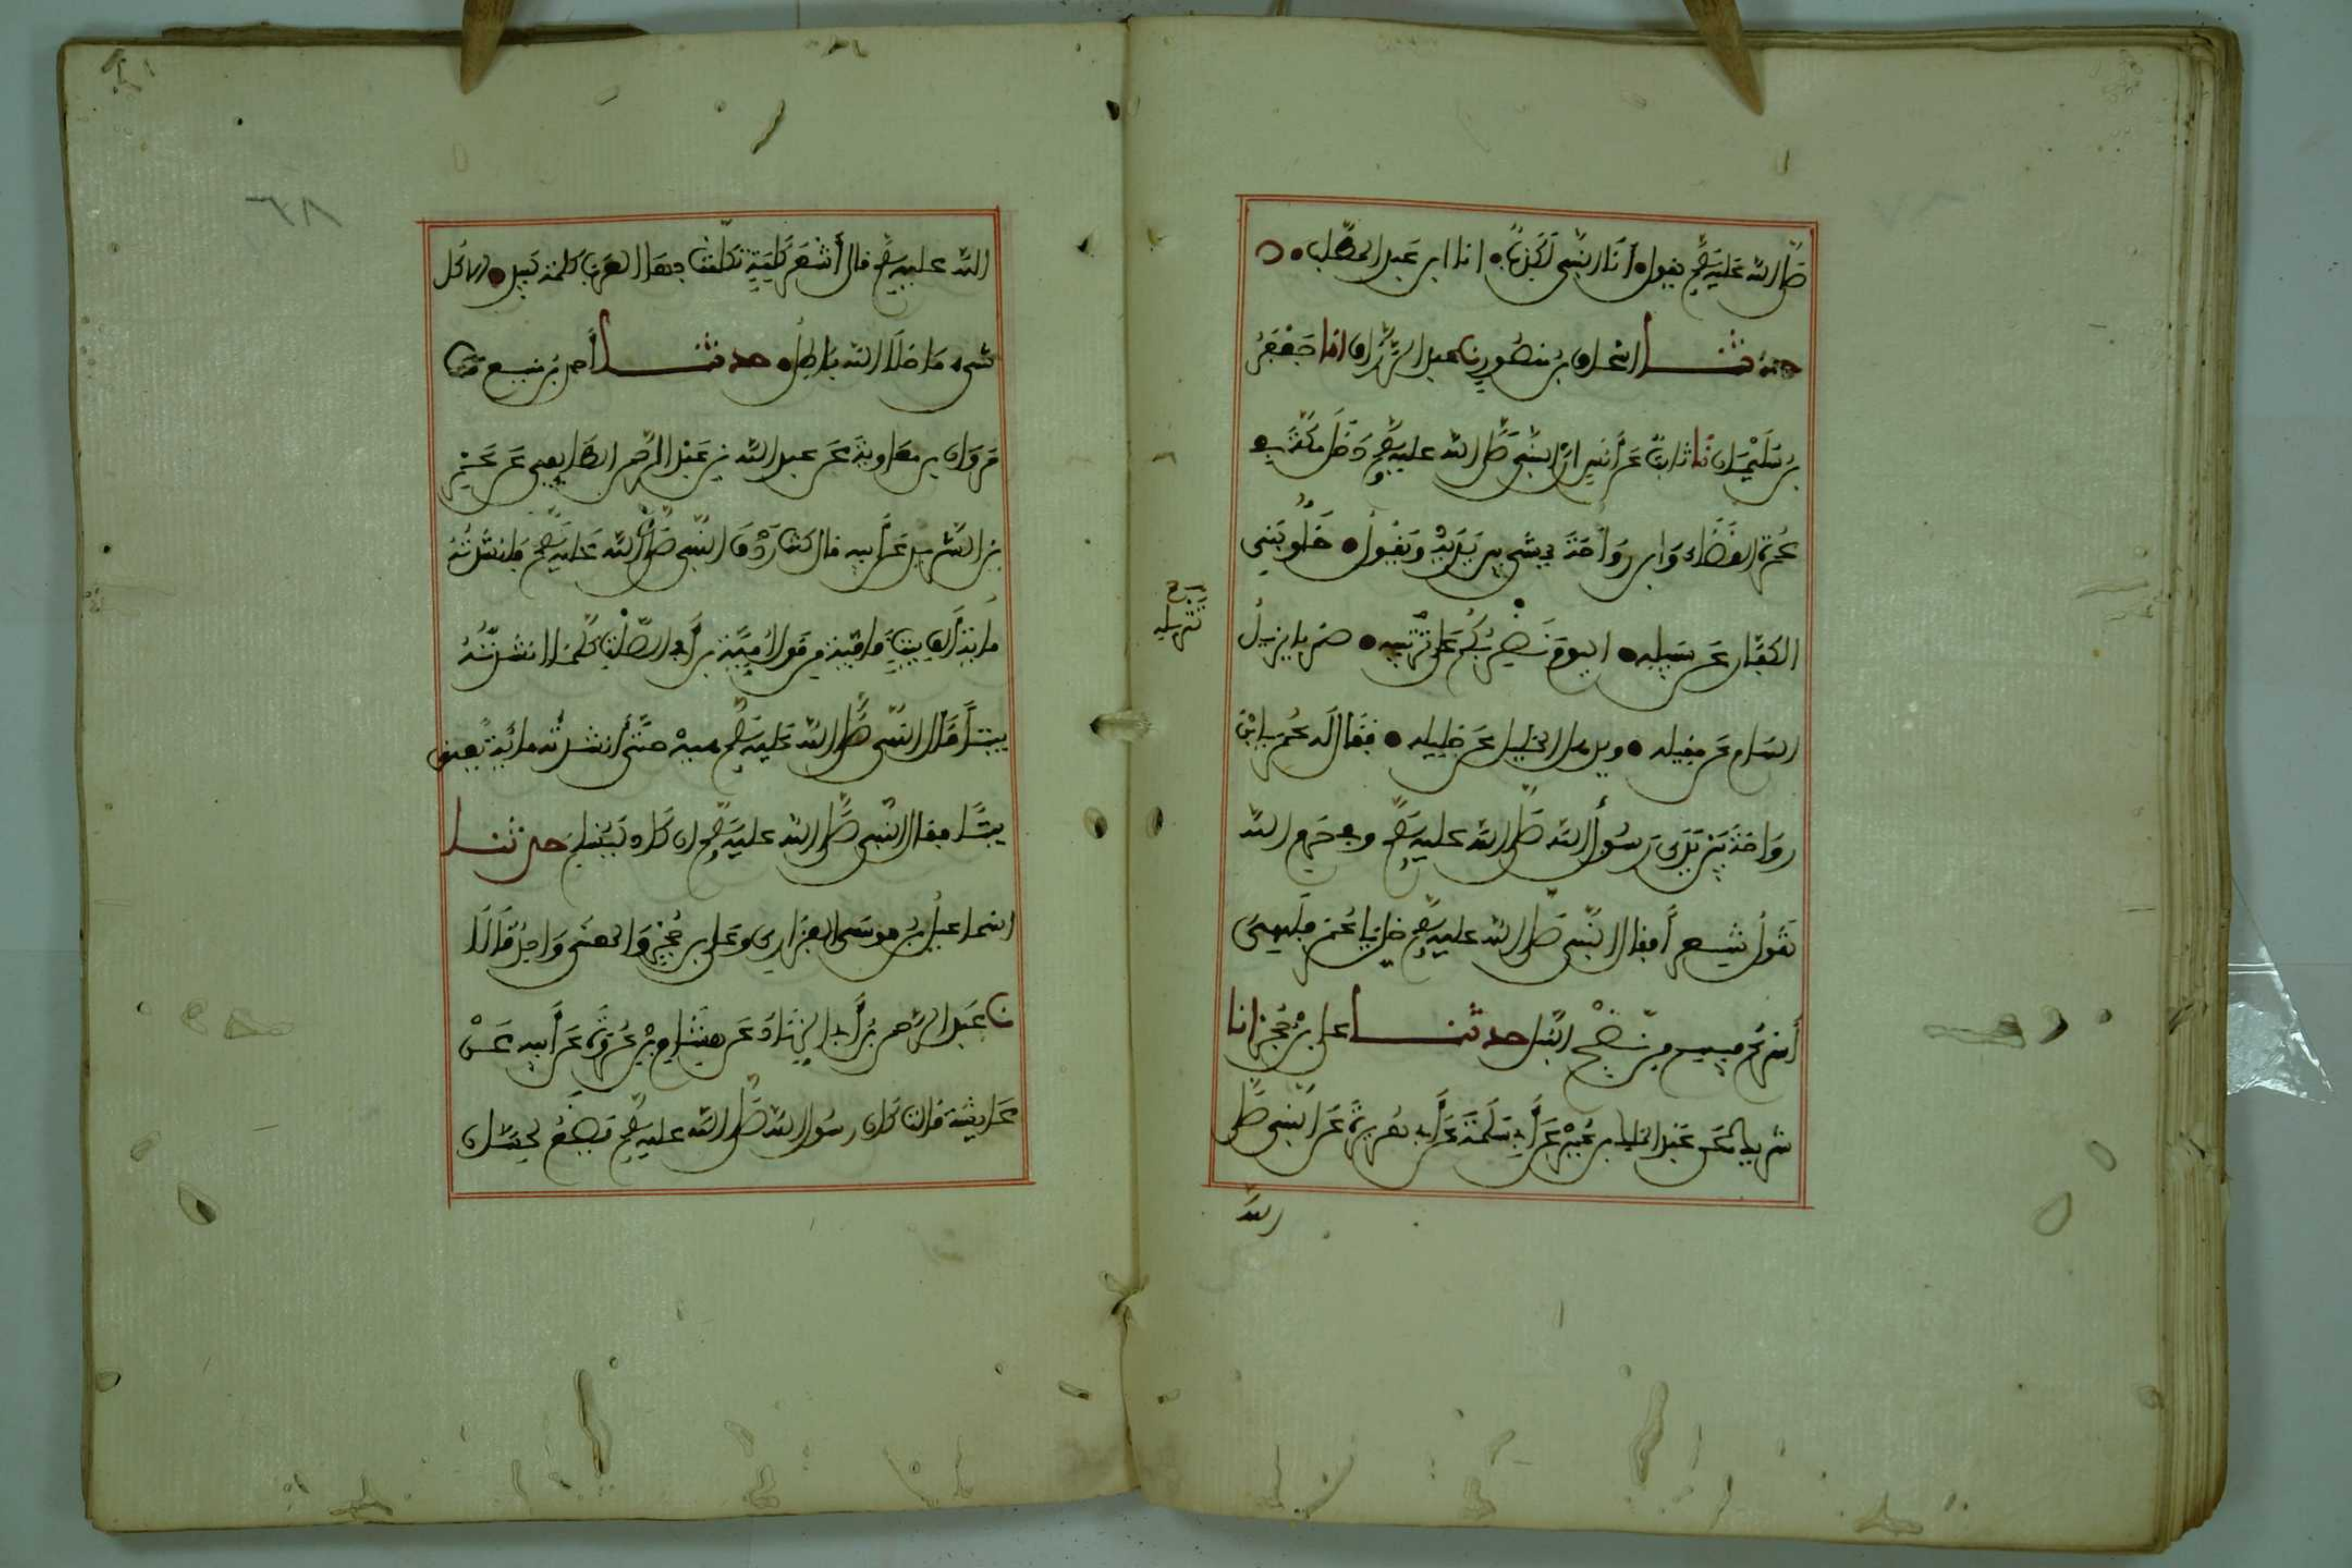 صلى الله عليه وسلم يقول أنا النبي لا كذب انا ابن عبد المطلب
حدثنا اسحاق بن منصور نا عبد الرزاق انا جعفر
بن سليمان نا ثابت عن أنس ان النبي صلى الله عليه وسلم دخل مكة في
عمرة القضاء وابن رواحة يمشي بين يديه ويقول خلوا بني
الكفار عن سبيله اليوم نضربكم على تنزيله ضربا يزيل
الهام عن مقيله ويذهل الخليل عن خليله فقال له عمر يا ابن
رواحة بين يدي رسول الله صلى الله عليه وسلم وفي حرم الله
تقول شعرا فقال النبي صلى الله عليه وسلم خل عنه يا عمر فلهي
أسرع فيهم من نضح النبل حدثنا علي بن حجر انا
شريك عن عبد الملك بن عمير عن أبي سلمة عن أبي هريرة عن النبي صلى
الله
تنزيله
الله عليه وسلم قال أشعر كلمة تكلمت بها العرب كلمة لبيد الا كل
شيء ما خلا الله باطل حدثنا أحمد بن منيع نا
مروان بن معاوية عن عبد الله بن عبد الرحمن الطايفي عن عمرو
بن الشريد عن أبيه قال كنت ردف النبي صلى الله عليه وسلم فانشدته
ماية قافية من قول أمية بن أبي الصلت كلما انشدته
بيتا قال النبي صلى الله عليه وسلم هيه حتى أنشدته ماية يعني
بيتا فقال النبي صلى الله عليه وسلم ان كاد ليسلم حدثنا
اسماعيل بن موسى الفزاري وعلي بن حجر والمعنى واحد قالا
نا عبد الرحمن بن أبي الزناد عن هشام بن عروة عن أبيه عن
عايشة قالت كان رسول الله صلى الله عليه وسلم يضع لحسان